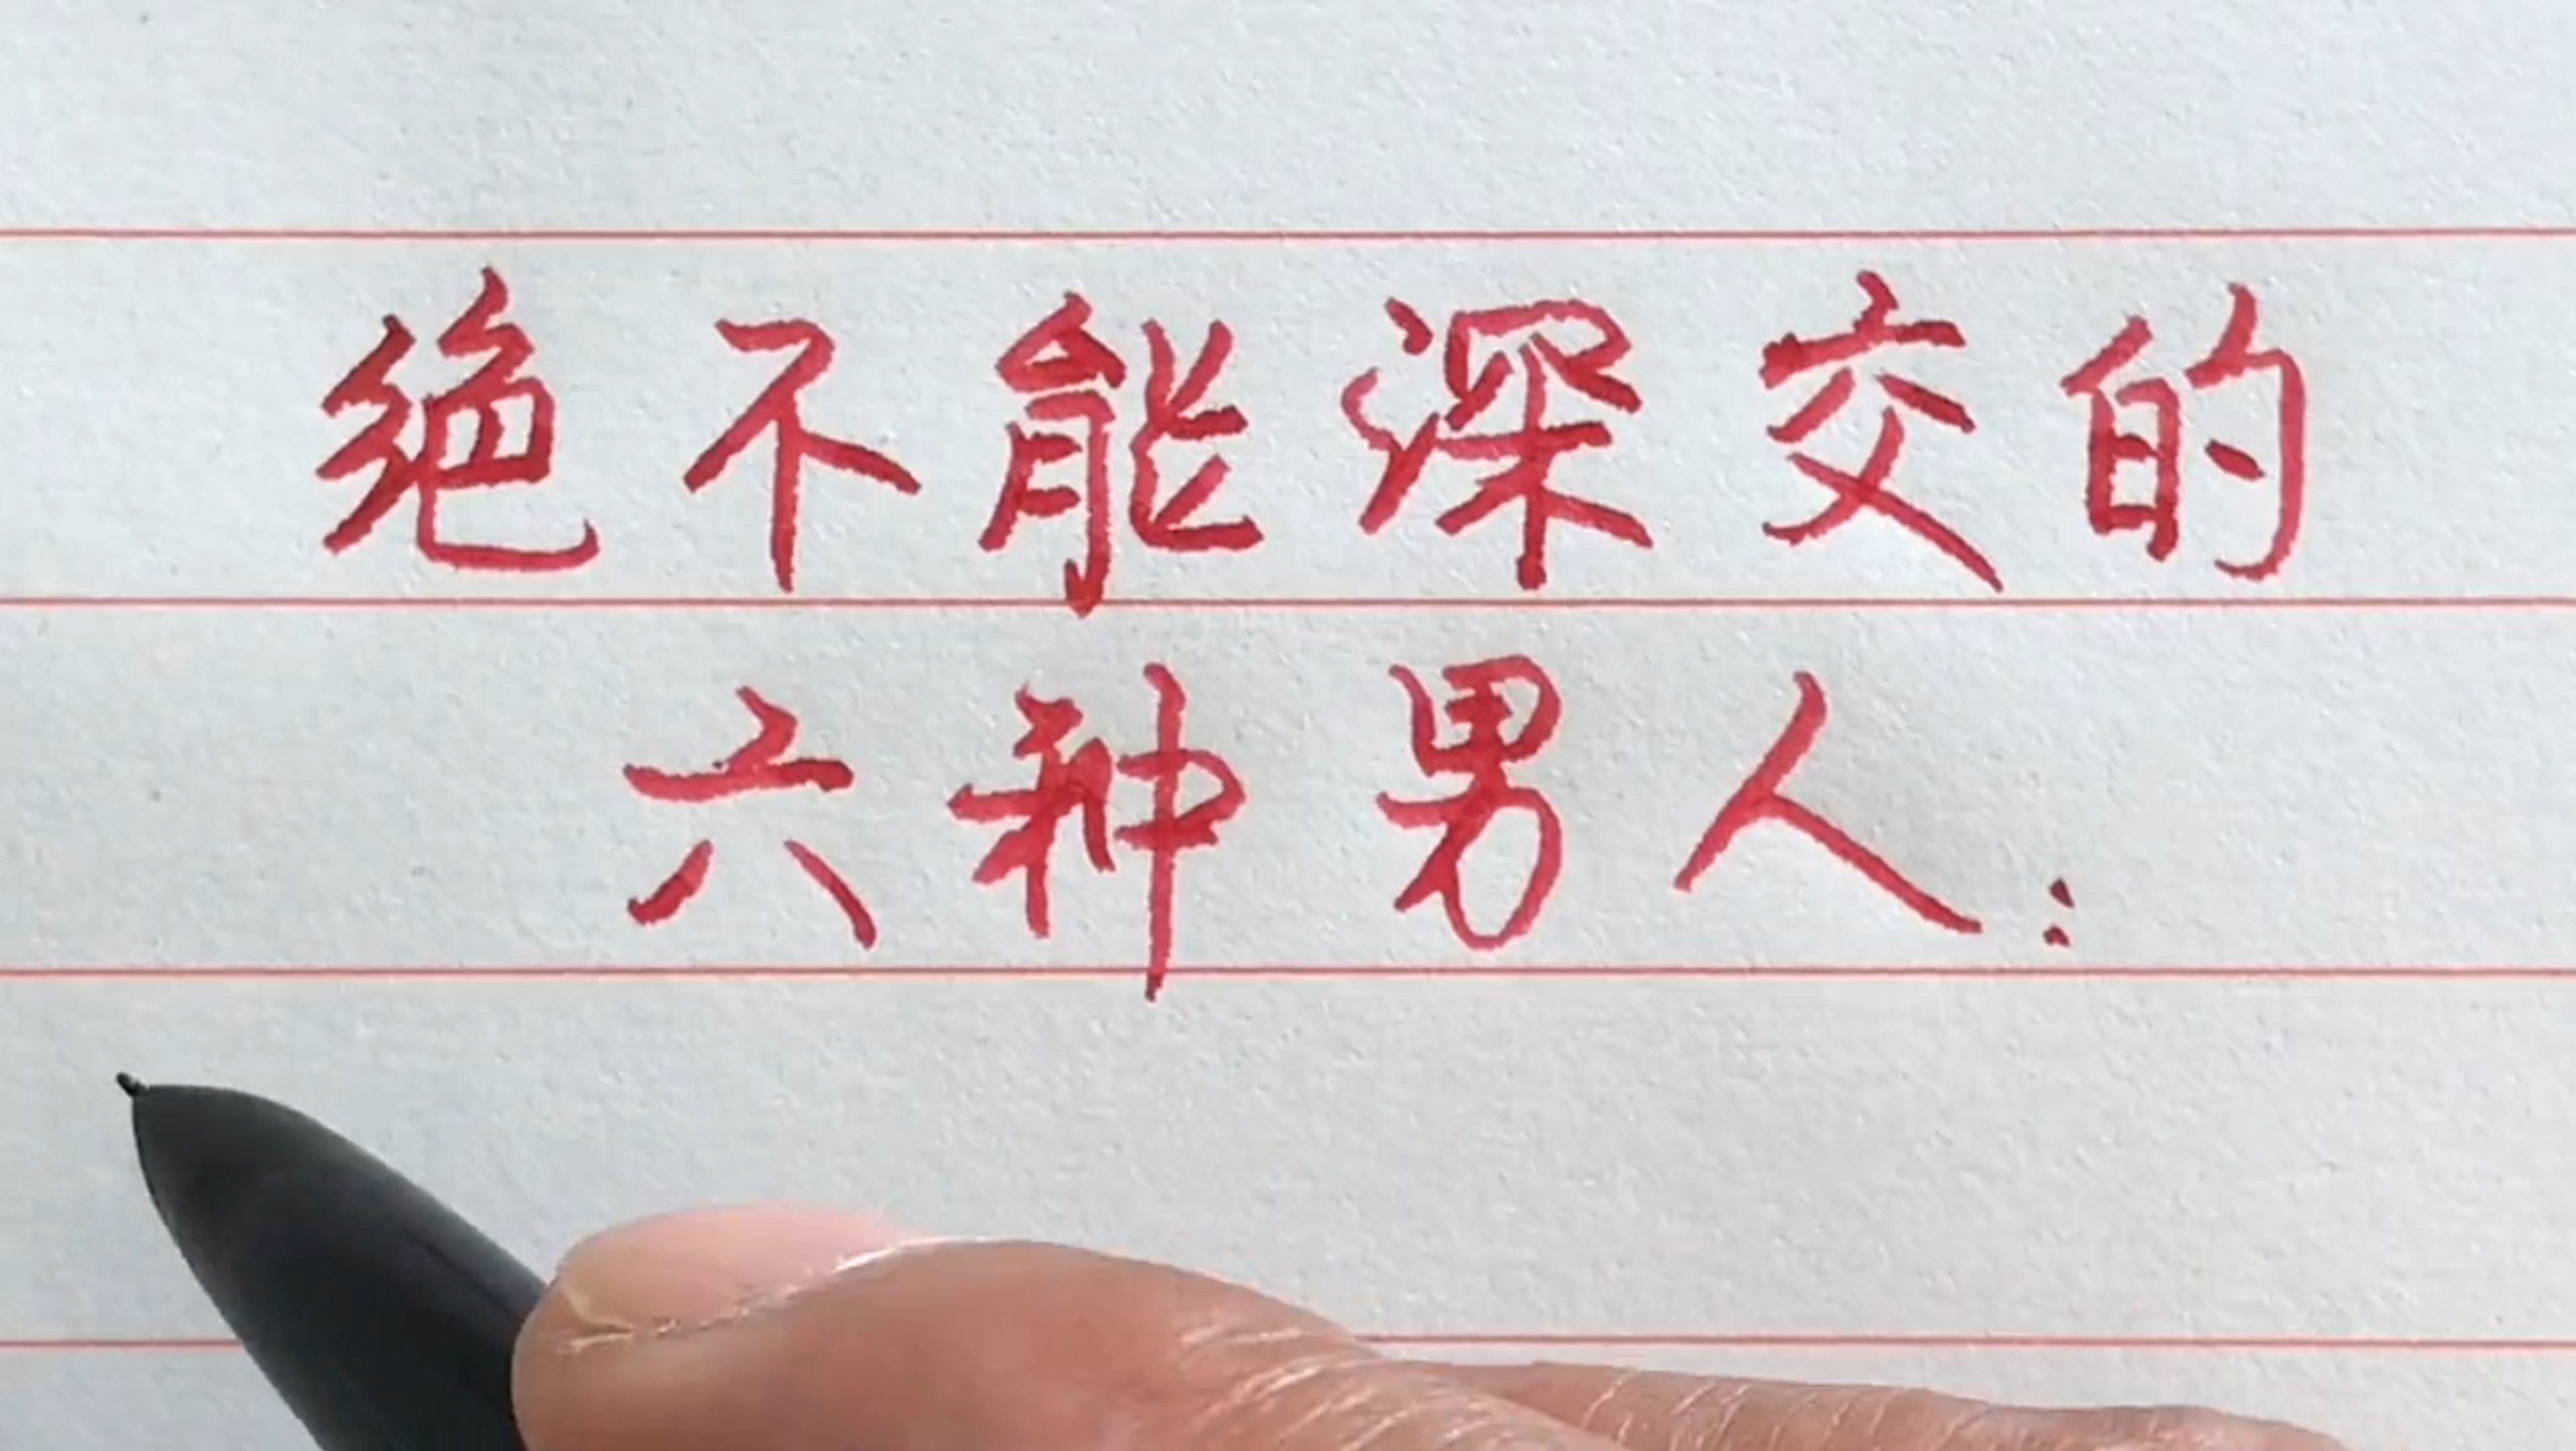 绝不能深交的
六种男人: